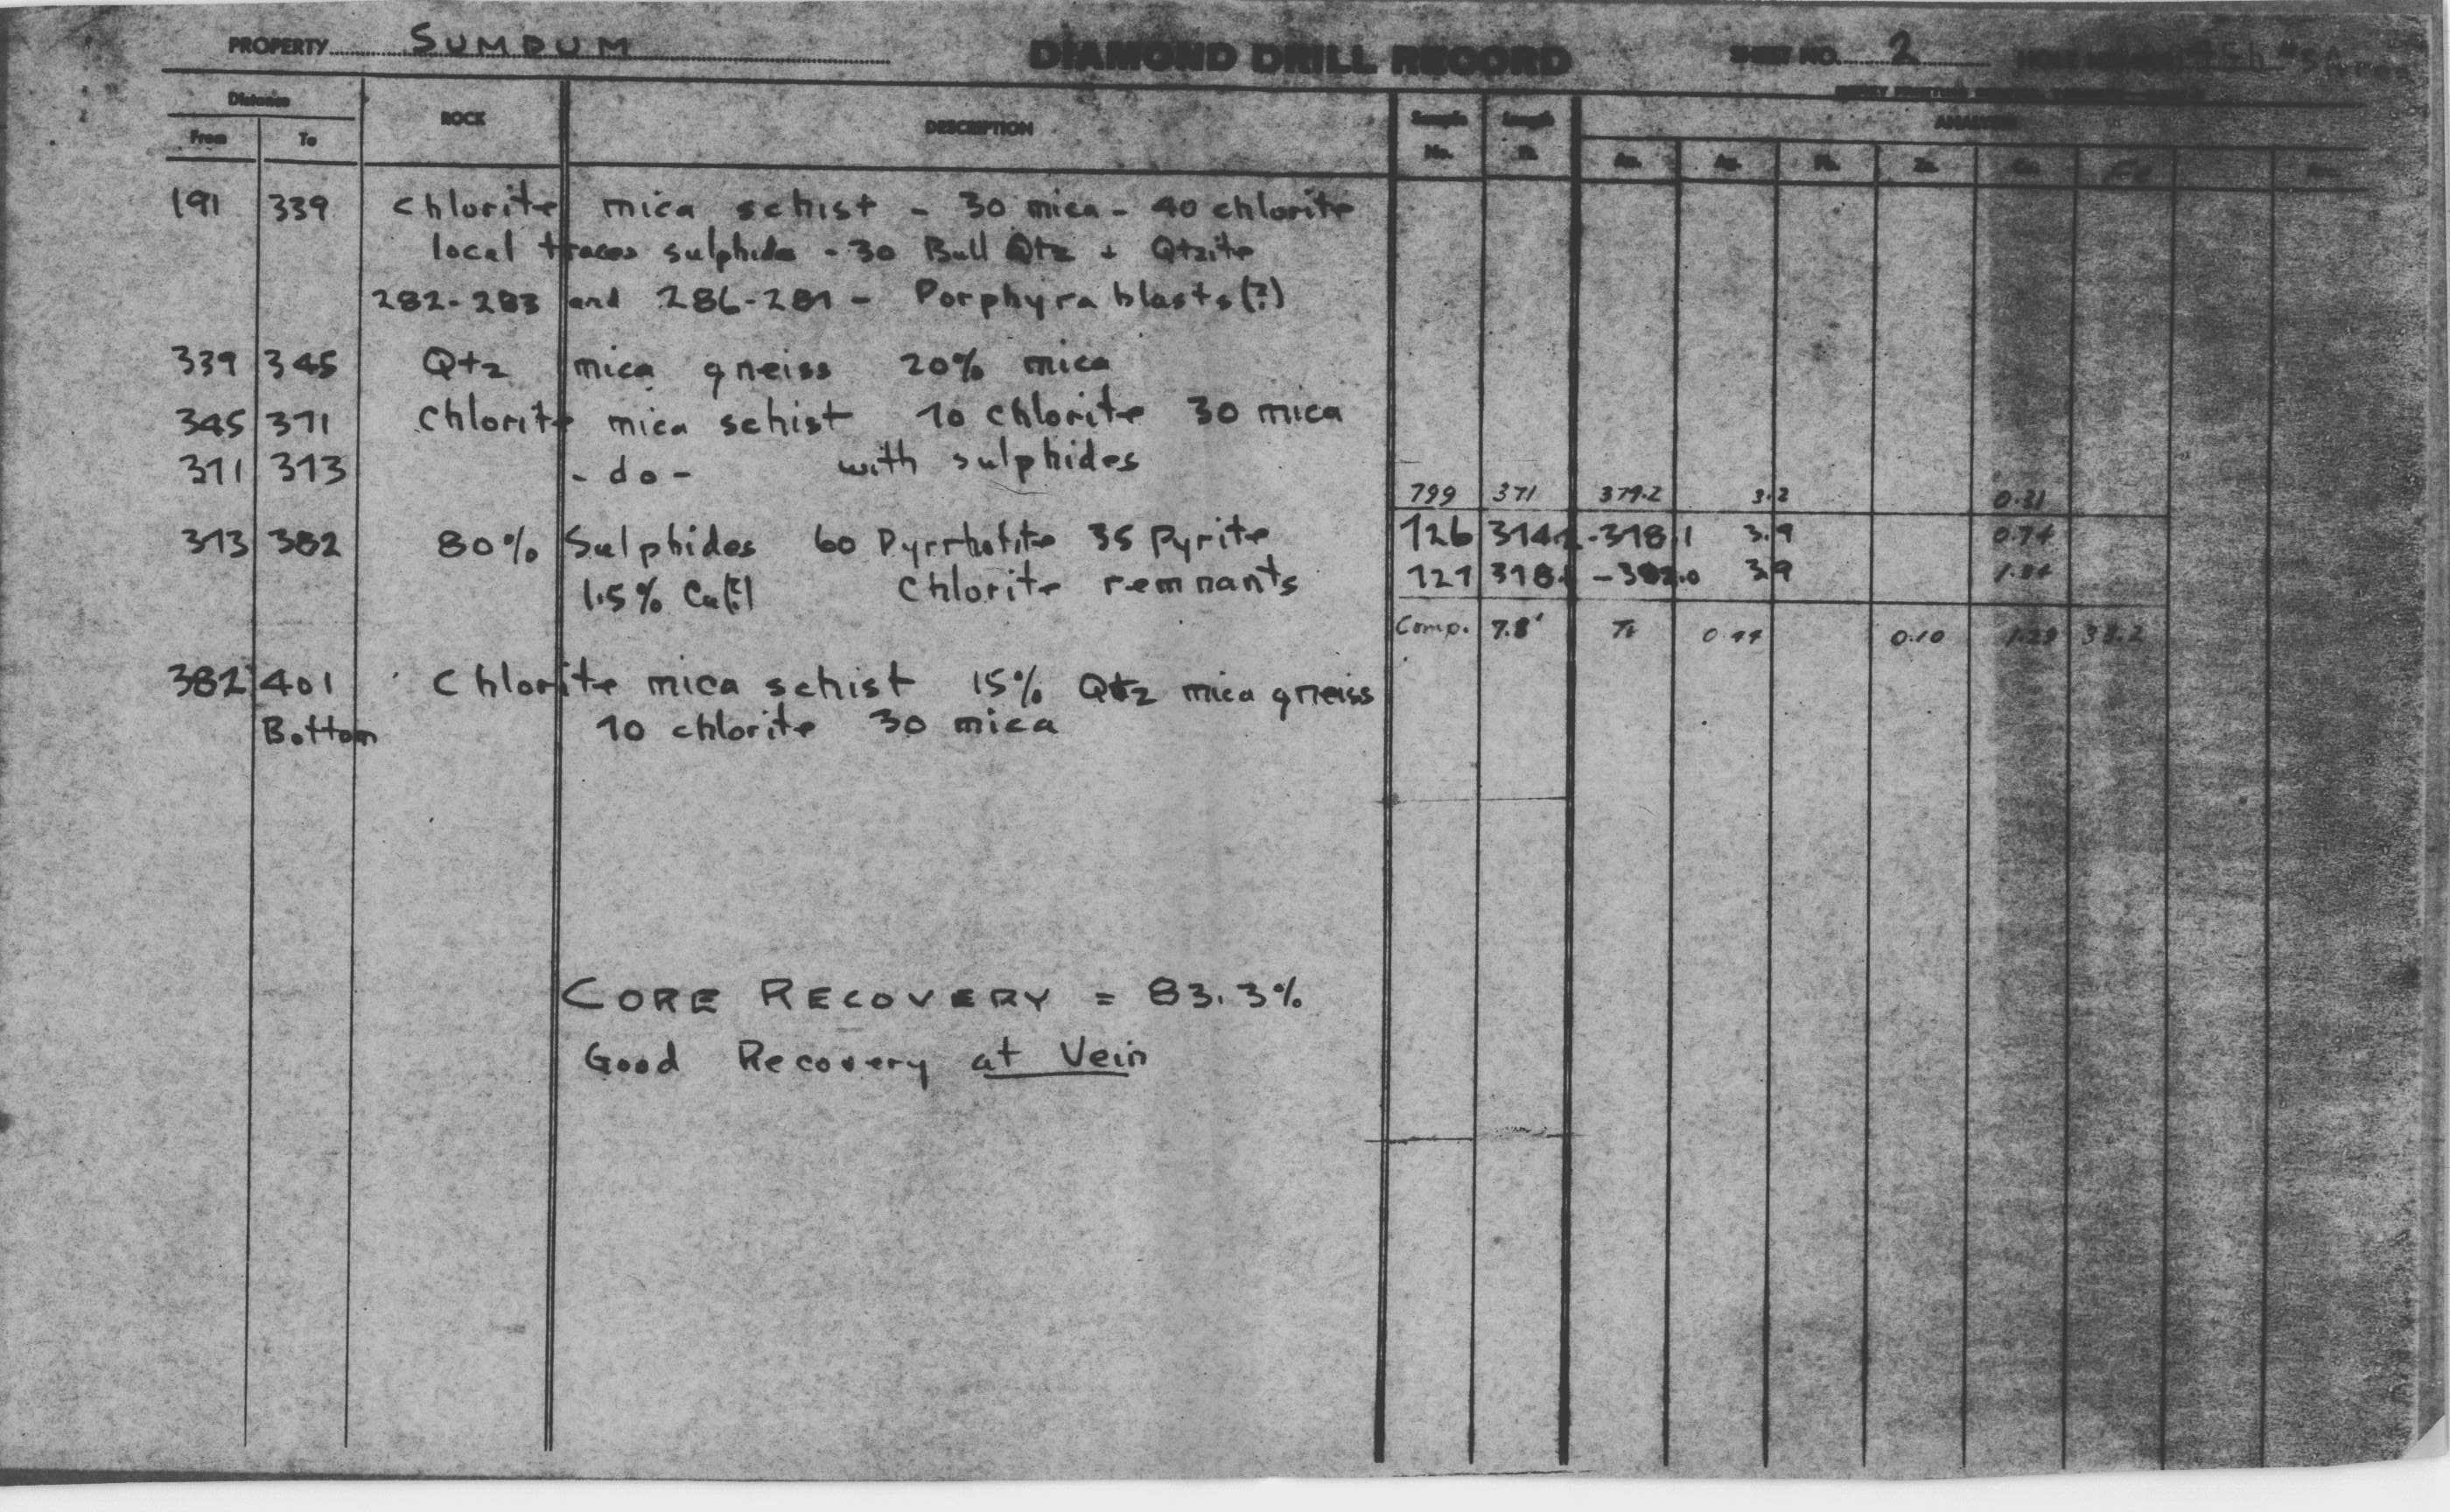 PROPERTY SUMDUM DIAMOND DRILL RECORD SHEET NO. 2
Distance ROCK DESCRIPTION Sample Length
From To No. Ft.
191 339 Chlorite mica schist - 30 mica - 40 chlorite
local traces sulphide - 30 Bull Qtz + Qtzite
282-283 and 286-287 - Porphyrablasts(?)
339 345 Qtz mica gneiss 20% mica
345 371 Chlorite mica schist 70 chlorite 30 mica
371 373 - do - with sulphides
799 371 3.2
373 382 80% Sulphides 60 Pyrrhotite 35 Pyrite
726 -378.1 3.9 0.74
1.5% Cu(?) Chlorite remnants
727 378.1 -382.0 3.9
Comp. 7.8' Tr 0.10
382 401 Chlorite mica schist 15% Qtz mica gneiss
Bottom 70 chlorite 30 mica
CORE RECOVERY = 83.3%
Good Recovery at Vein